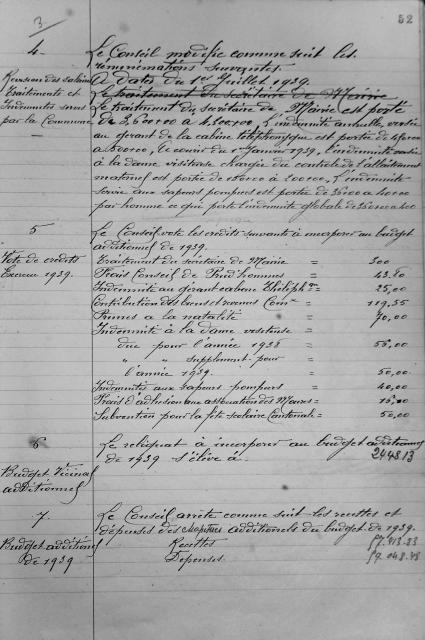 52
3.
4.
Le Conseil modifie comme suit les
rémunérations suivantes.
Revision des salaires
A dater du 1er Juillet 1939.
Traitements et
Le traitement du secrétaire de Mairie
Indemnités servis
Le traitement du secrétaire de Mairie est porté
par la Commune
de 3,600 à 4,200, L'indemnité annuelle versée
au gérant de la cabine téléphonique est portée de
à 500, Janvier 1939, l'indemnité
à la dame visiteuse chargée du contrôle de l'allaitement
maternel est portée de à 200, L'indemnité
servie aux sapeurs pompiers est portée de
par homme ce qui porte l'indemnité globale de
5
Le Conseil vote les crédits suivants à incorporer au budget
additionnel de 1939.
Vote de crédits
Exercice 1939.
Traitement du secrétaire de Mairie = 300
Frais Conseil de Prud'hommes =
Indemnité au gérant cabine Téléphque = 25,00
Contribution des biens et revenus Comx = 119.55
Primes à la natalité = 70,00
Indemnité à la dame visiteuse =
due pour l'année 1938 = 50,00
" " supplément pour
l'année 1939. = 50.00
Indemnités aux sapeurs pompiers = 40,00
Frais d'adhésion aux associations des Maires =
Subvention pour la fête scolaire Cantonale = 50,00
6
Le reliquat à incorporer au budget additionnel
de 1939 s'élève à. 2448.13
Budget Vicinal
additionnel
7.
Le Conseil arrête comme suit les recettes et
dépenses des chapitres additionnels du budget de 1939.
Budget additionnel
de 1939
Recettes
Dépenses